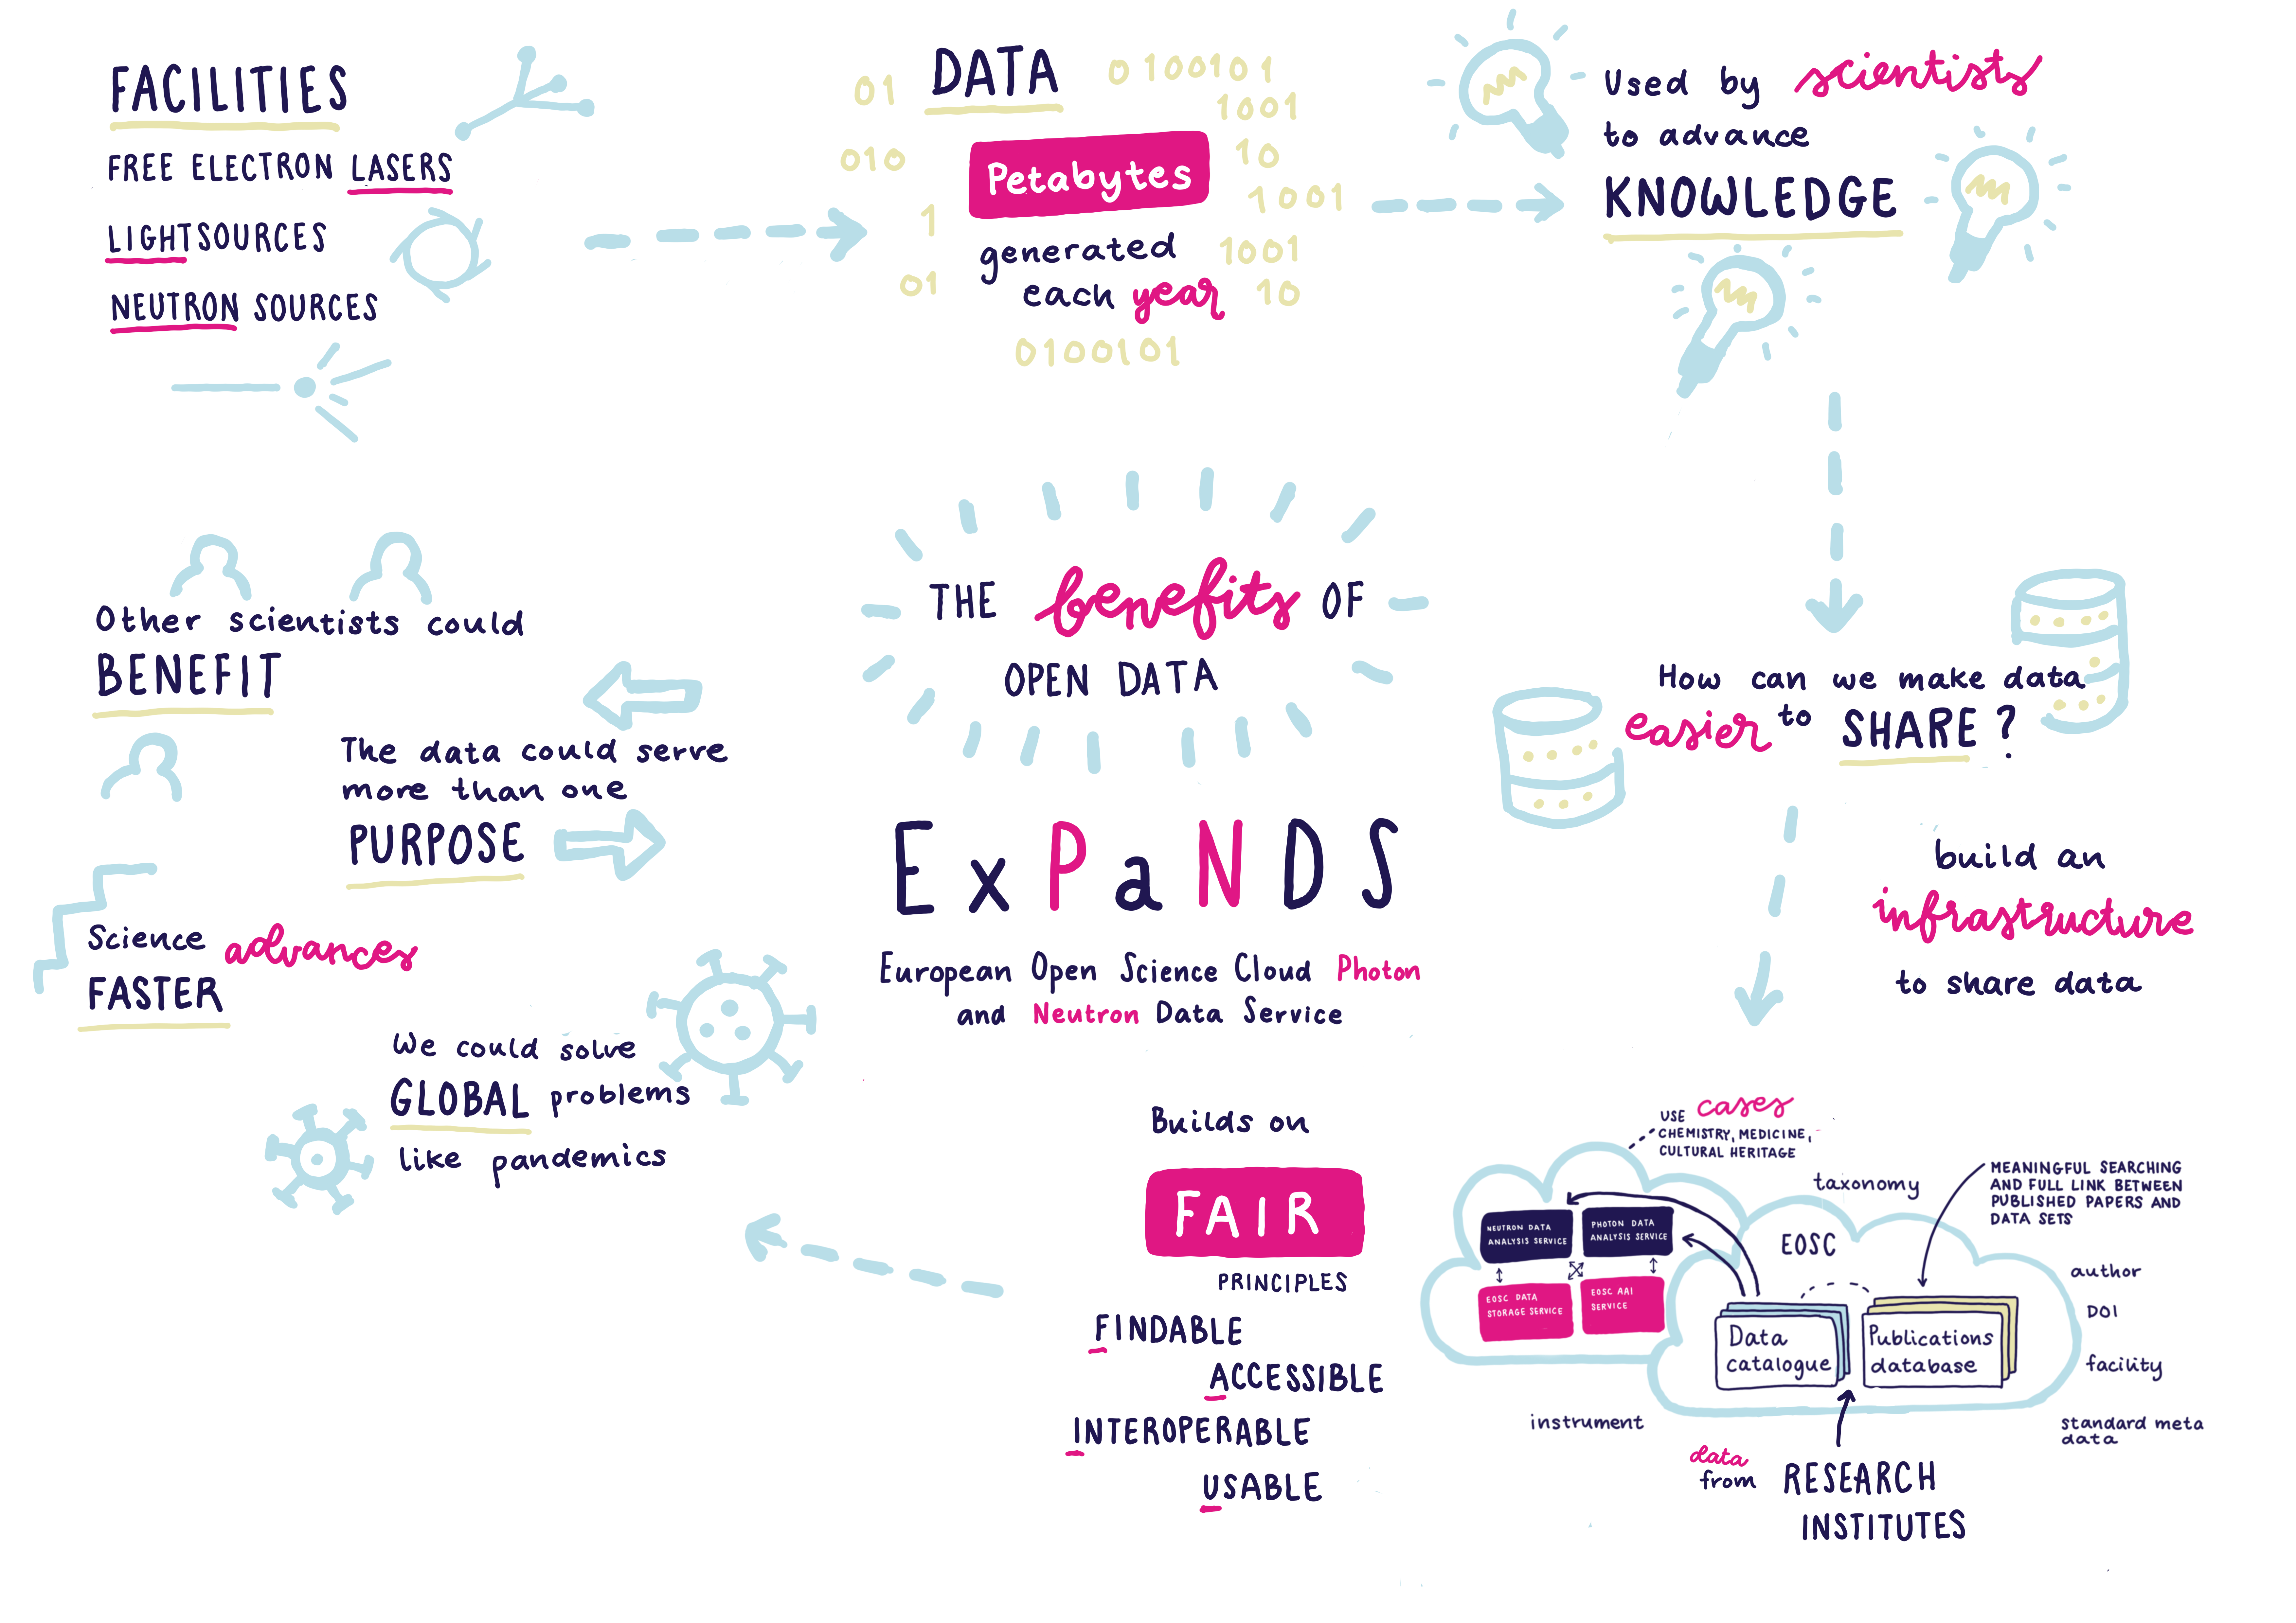 FACILITIES
FREE ELECTRON LASERS
LIGHTSOURCES
NEUTRON SOURCES
01
DATA
0 100101
1001
010
Petabytes
10
1001
1
generated
1001
01
each year
10
0100101
Used by scientists
to advance
KNOWLEDGE
How can we make data
easier to SHARE ?
build an
infrastructure
to share data
THE benefits OF
OPEN DATA
ExPaNDS
European Open Science Cloud Photon
and Neutron Data Service
Builds on
FAIR
PRINCIPLES
FINDABLE
ACCESSIBLE
INTEROPERABLE
USABLE
USE cases
CHEMISTRY, MEDICINE,
CULTURAL HERITAGE
taxonomy
MEANINGFUL SEARCHING
AND FULL LINK BETWEEN
PUBLISHED PAPERS AND
DATA SETS
NEUTRON DATA
ANALYSIS SERVICE
PHOTON DATA
ANALYSIS SERVICE
EOSC DATA
STORAGE SERVICE
EOSC AAI
SERVICE
EOSC
Data
catalogue
Publications
database
author
DOI
facility
standard meta
data
instrument
data
from RESEARCH
INSTITUTES
Other scientists could
BENEFIT
The data could serve
more than one
PURPOSE
Science advances
FASTER
We could solve
GLOBAL problems
like pandemics